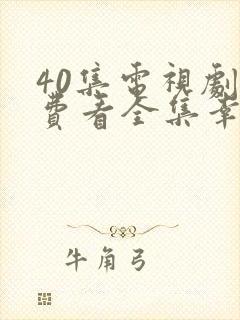 40集電視劇
費看全集幸
牛角弓